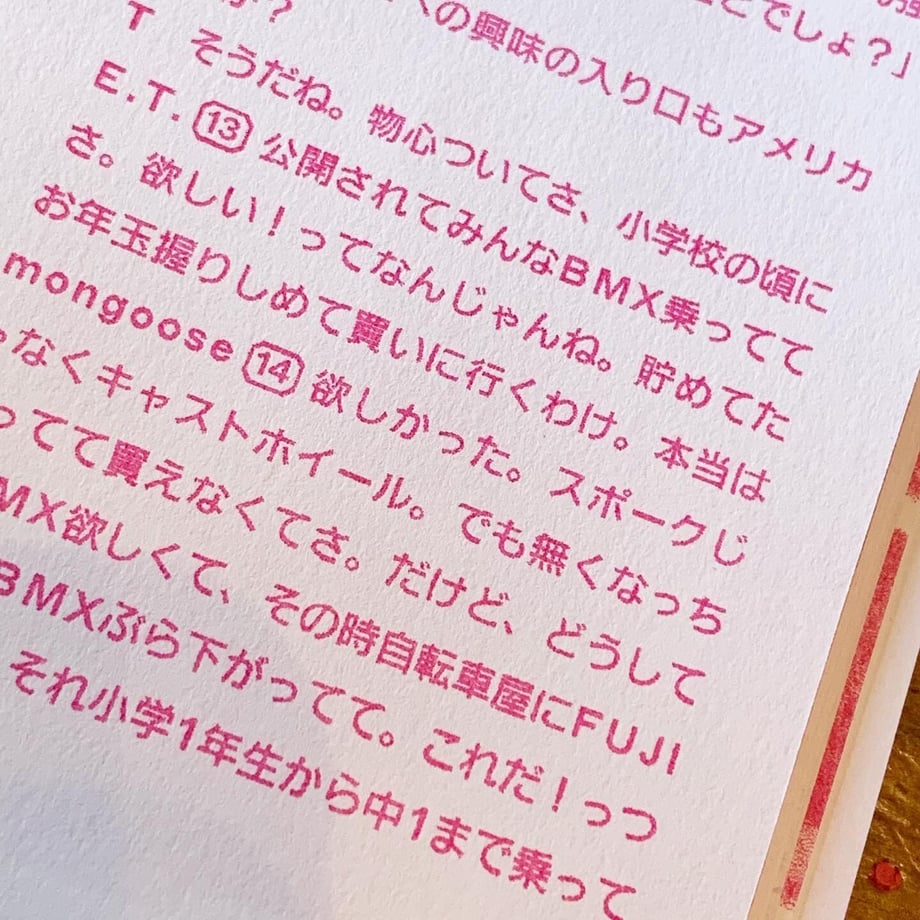 とでしょ？」
への興味の入り口もアメリカ
か？
T そうだね。物心ついてさ、小学校の頃に
E.T.⑬公開されてみんなBMX乗ってて
さ。欲しい！ってなんじゃんね。貯めてた
お年玉握りしめて買いに行くわけ。本当は
mongoose⑭欲しかった。スポークじ
ゃなくキャストホイール。でも無くなっち
ってて買えなくてさ。だけど、どうして
MX欲しくて、その時自転車屋にFUJI
BMXぶら下がってて。これだ！っつ
それ小学1年生から中1まで乗って